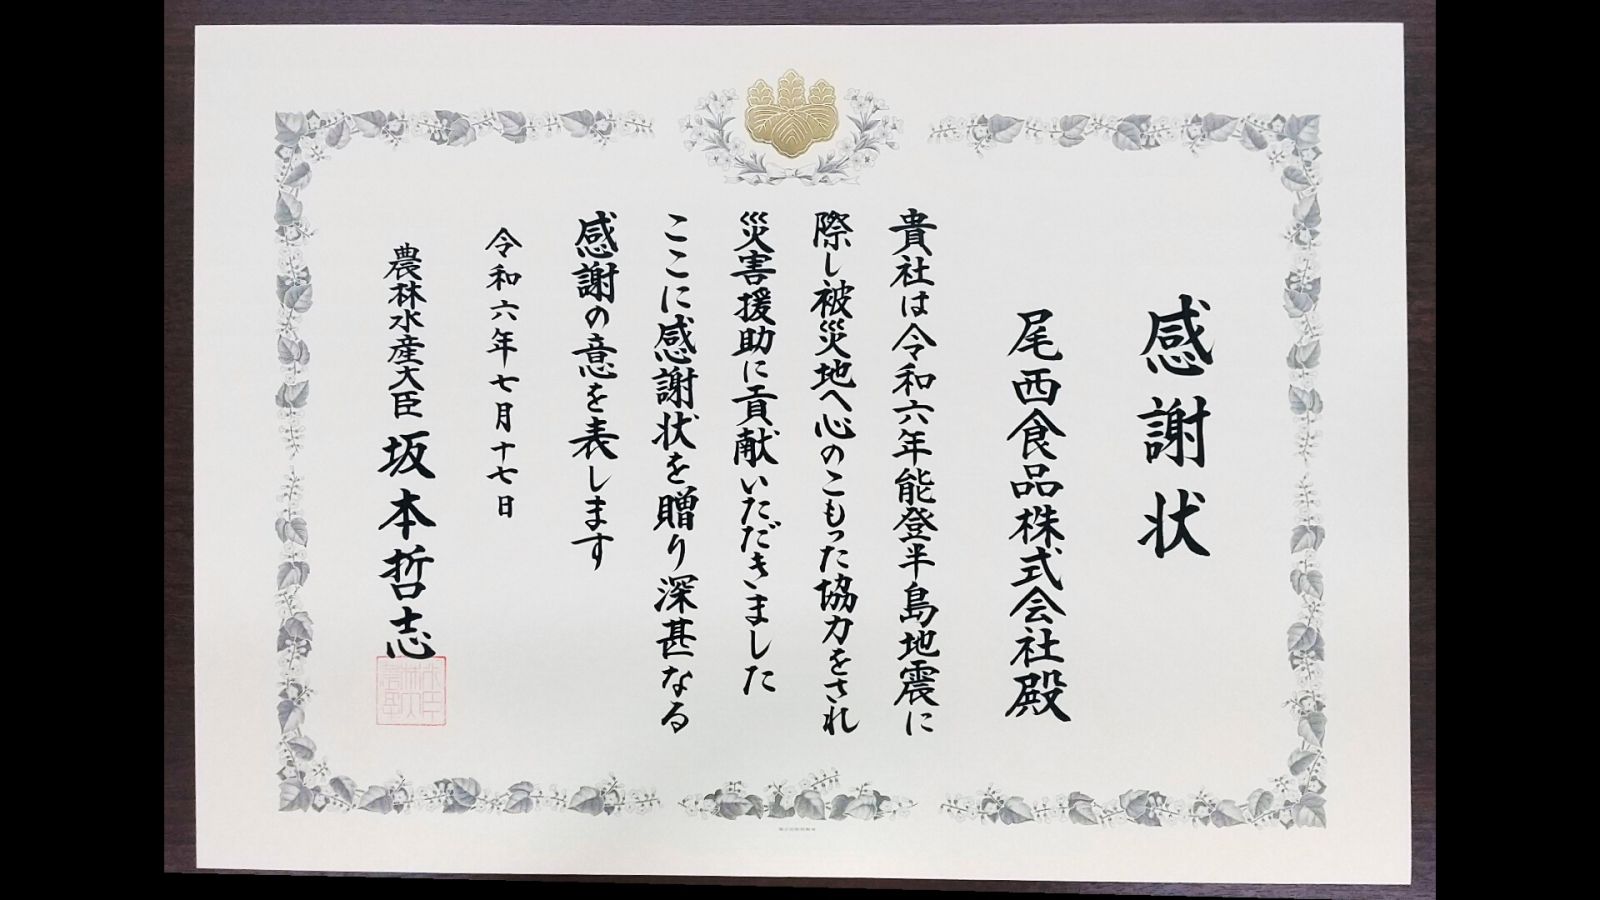 感謝状
尾西食品株式会社殿
貴社は令和六年能登半島地震に
際し被災地へ心のこもった協力をされ
災害援助に貢献いただきました
ここに感謝状を贈り深甚なる
感謝の意を表します
令和六年七月十七日
農林水産大臣 坂本哲志